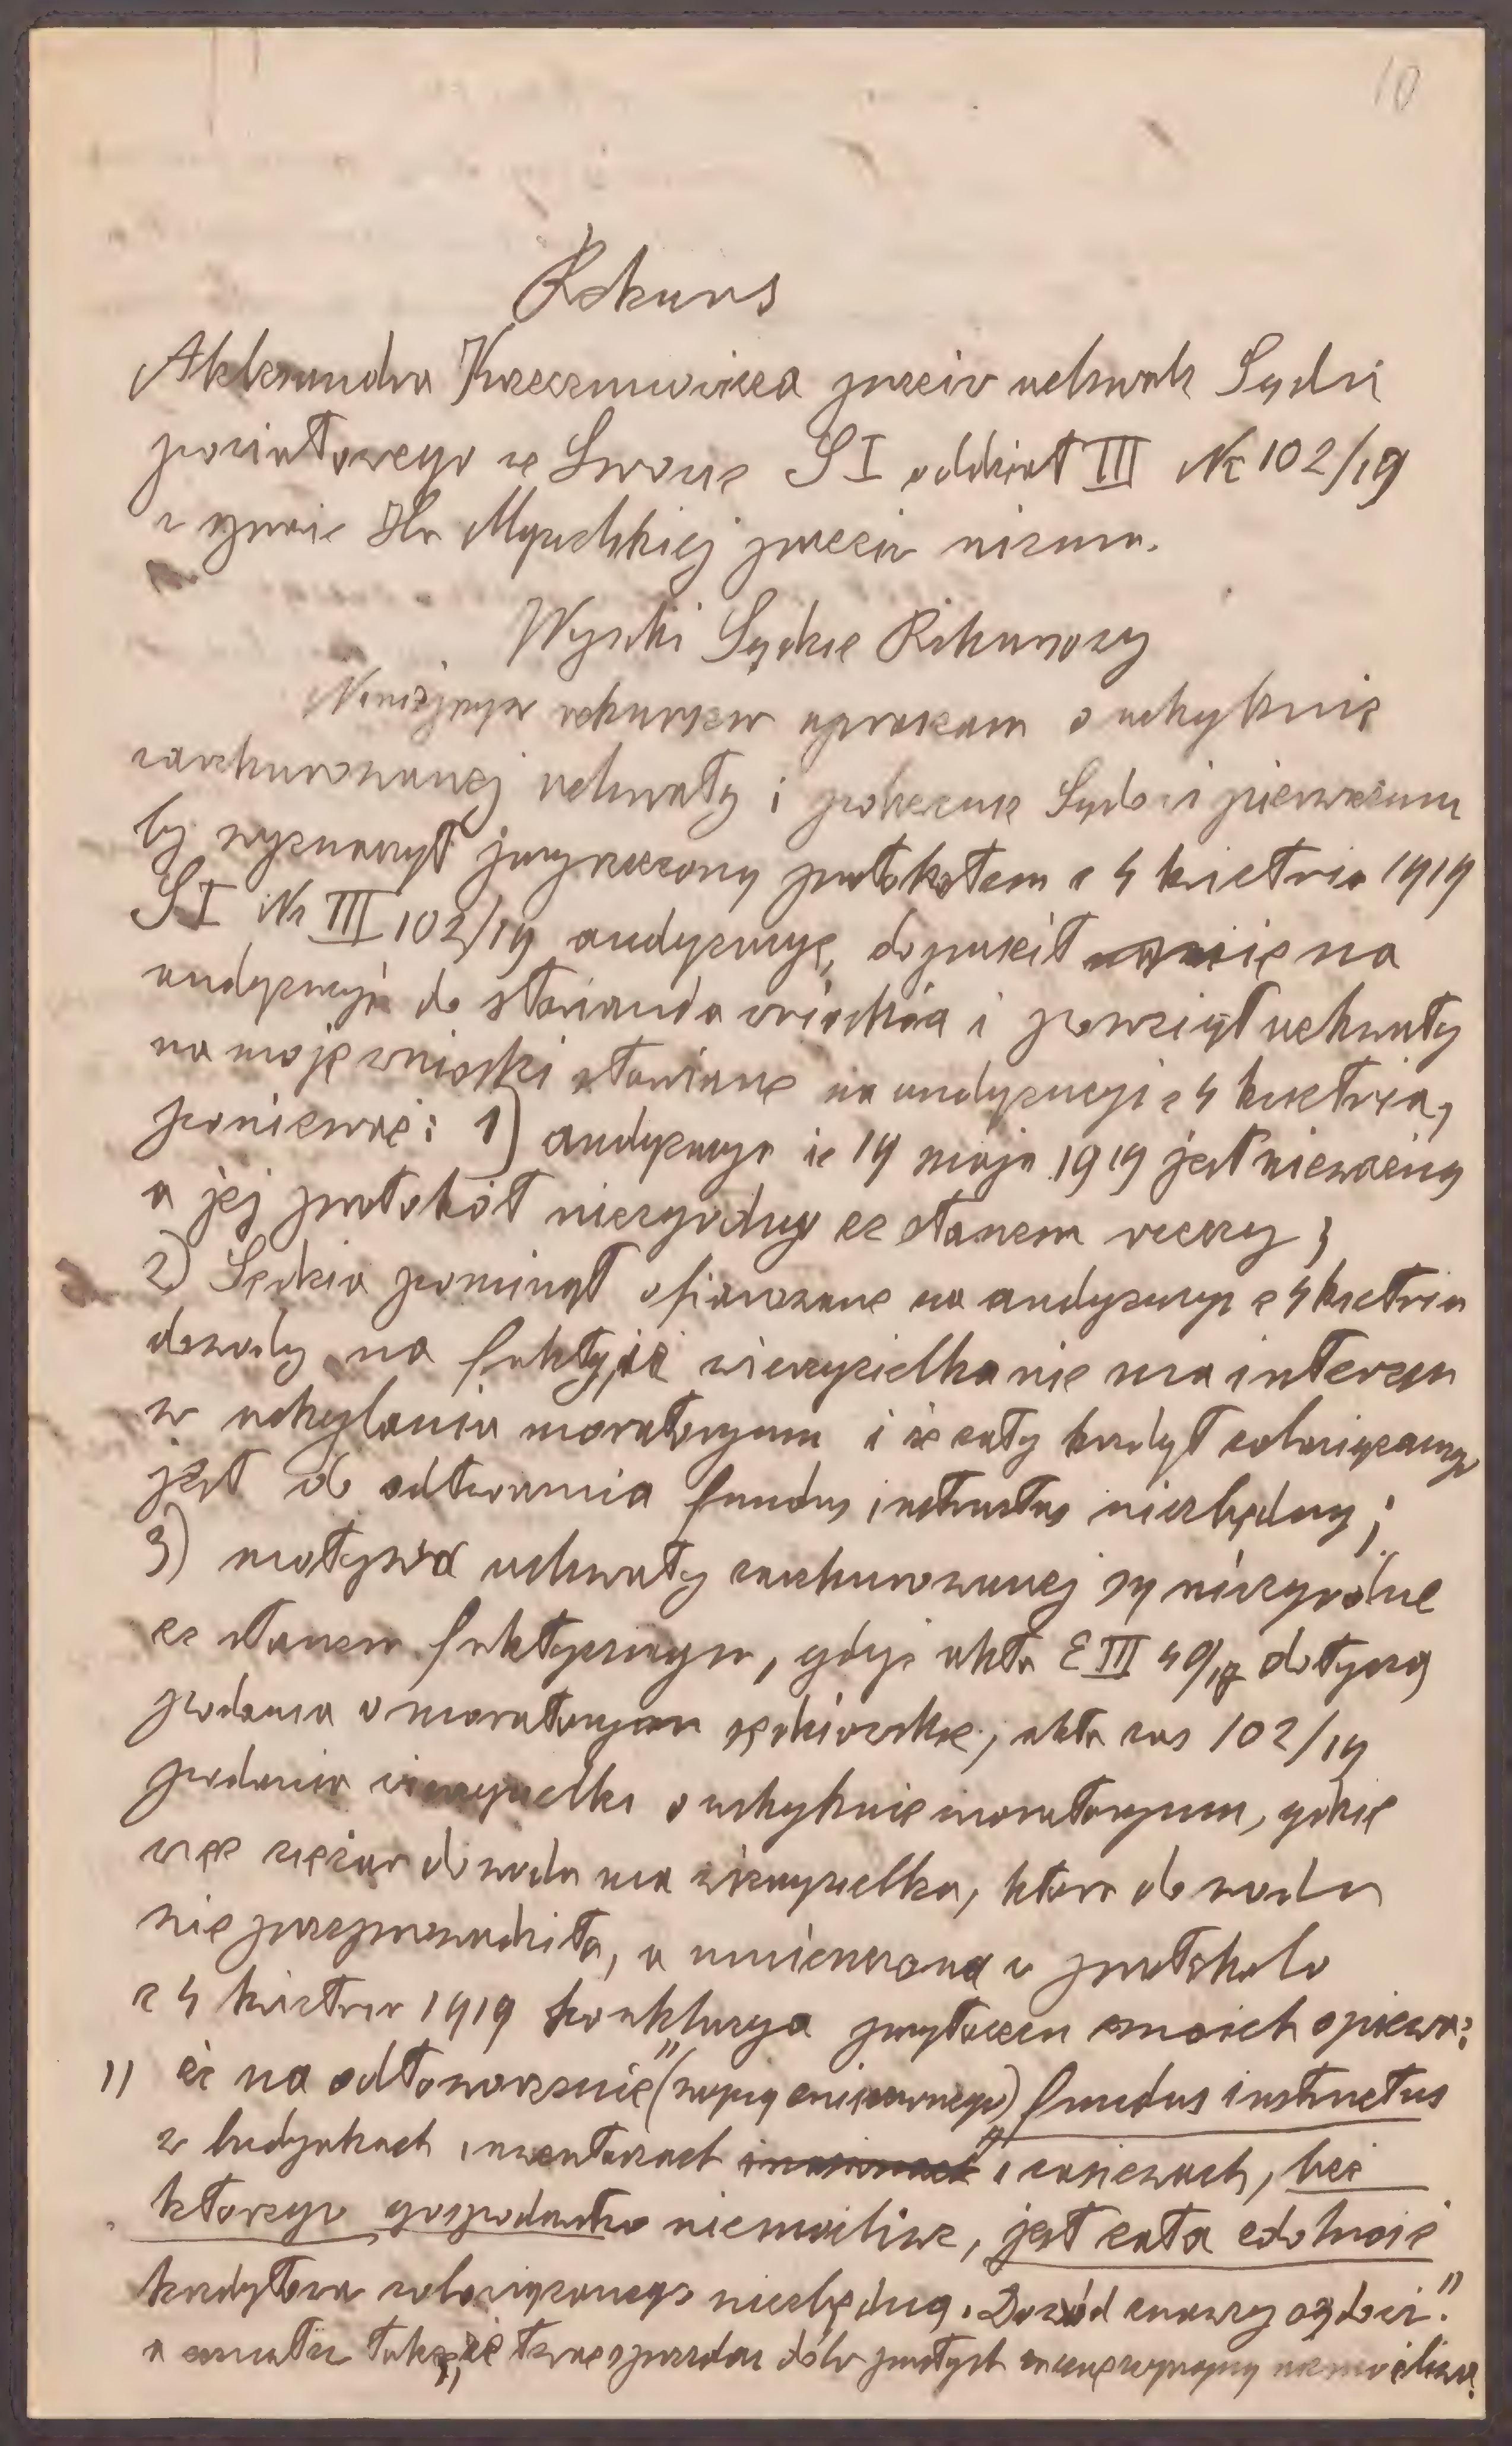 10
Rekurs
Aleksandra Krzeczunowicza przeciw uchwale Sądu
powiatowego we Lwowie S I oddział III Nc 102/19
w sprawie Hr Mycielskiej przeciw niemu.
Wysoki Sądzie Rekursowy
Niniejszym rekursem upraszam o uchylenie
zarekurowanej uchwały i polecenie Sądowi pierwszemu
by wyznaczył przyrzeczony protokołem z 4 kwietnia 1919
S I Nc III 102/19 audyencyę, dopuścił mnie na
audyencyi do stawiania wniosków i powziął uchwały
na moje wnioski stawiane na audyencyi z 4 kwietnia,
ponieważ: 1) audyencya z 14 maja 1919 jest nieważną
a jej protokół niezgodny ze stanem rzeczy;
2) Sędzia pominął ofiarowane na audyencyi z 4 kwietnia
dowody na fakty, iż wierzycielka nie ma interesu
w uchylaniu moratoryum i że cały kredyt zobowiązanego
jest do odtworzenia fundus instructus niezbędny;
3) motywa uchwały zarekurowanej są niezgodne
ze stanem faktycznym, gdyż akta E III 49/18 dotyczą
podania o moratoryum sędziowskie, akta zaś 102/19
podania wierzycielki o uchylenie moratoryum, gdzie
więc ciężar dowodu ma wierzycielka, która dowodu
nie przeprowadziła, a umieszczona w protokole
z 4 kwietnia 1919 konkluzya przytoczeń moich opiewa:
"że na odtworzenie" (wojną zniszczonego) fundus instructus
w budynkach inwentarzach i zasiewach, bez
którego gospodarka niemożliwe, jest cała zdolność
kredytowa zobowiązanego niezbędną. Dowód znawcy ogłosić."
a zarazem także, że sprzedaż dóbr niemożliwa.